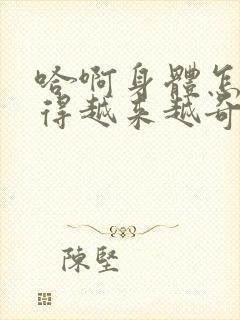 哈啊身體怎
得越來越奇
陳堅